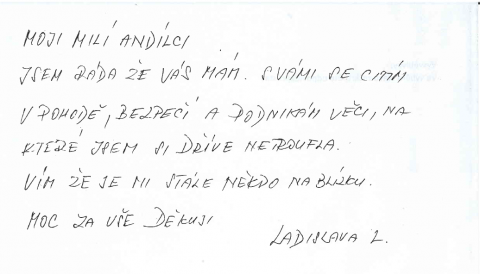 MOJI MILÍ ANDÍLCI
JSEM RÁDA ŽE VÁS MÁM. S VÁMI SE CITÍM
V POHODĚ, BEZPEČÍ A PODNIKÁM VĚCI, NA
KTERÉ JSEM SI DŘÍVE NETROUFLA.
VÍM ŽE JE MI STÁLE NĚKDO NABLÍZKU.
MOC ZA VŠE DĚKUJI
LADISLAVA L.